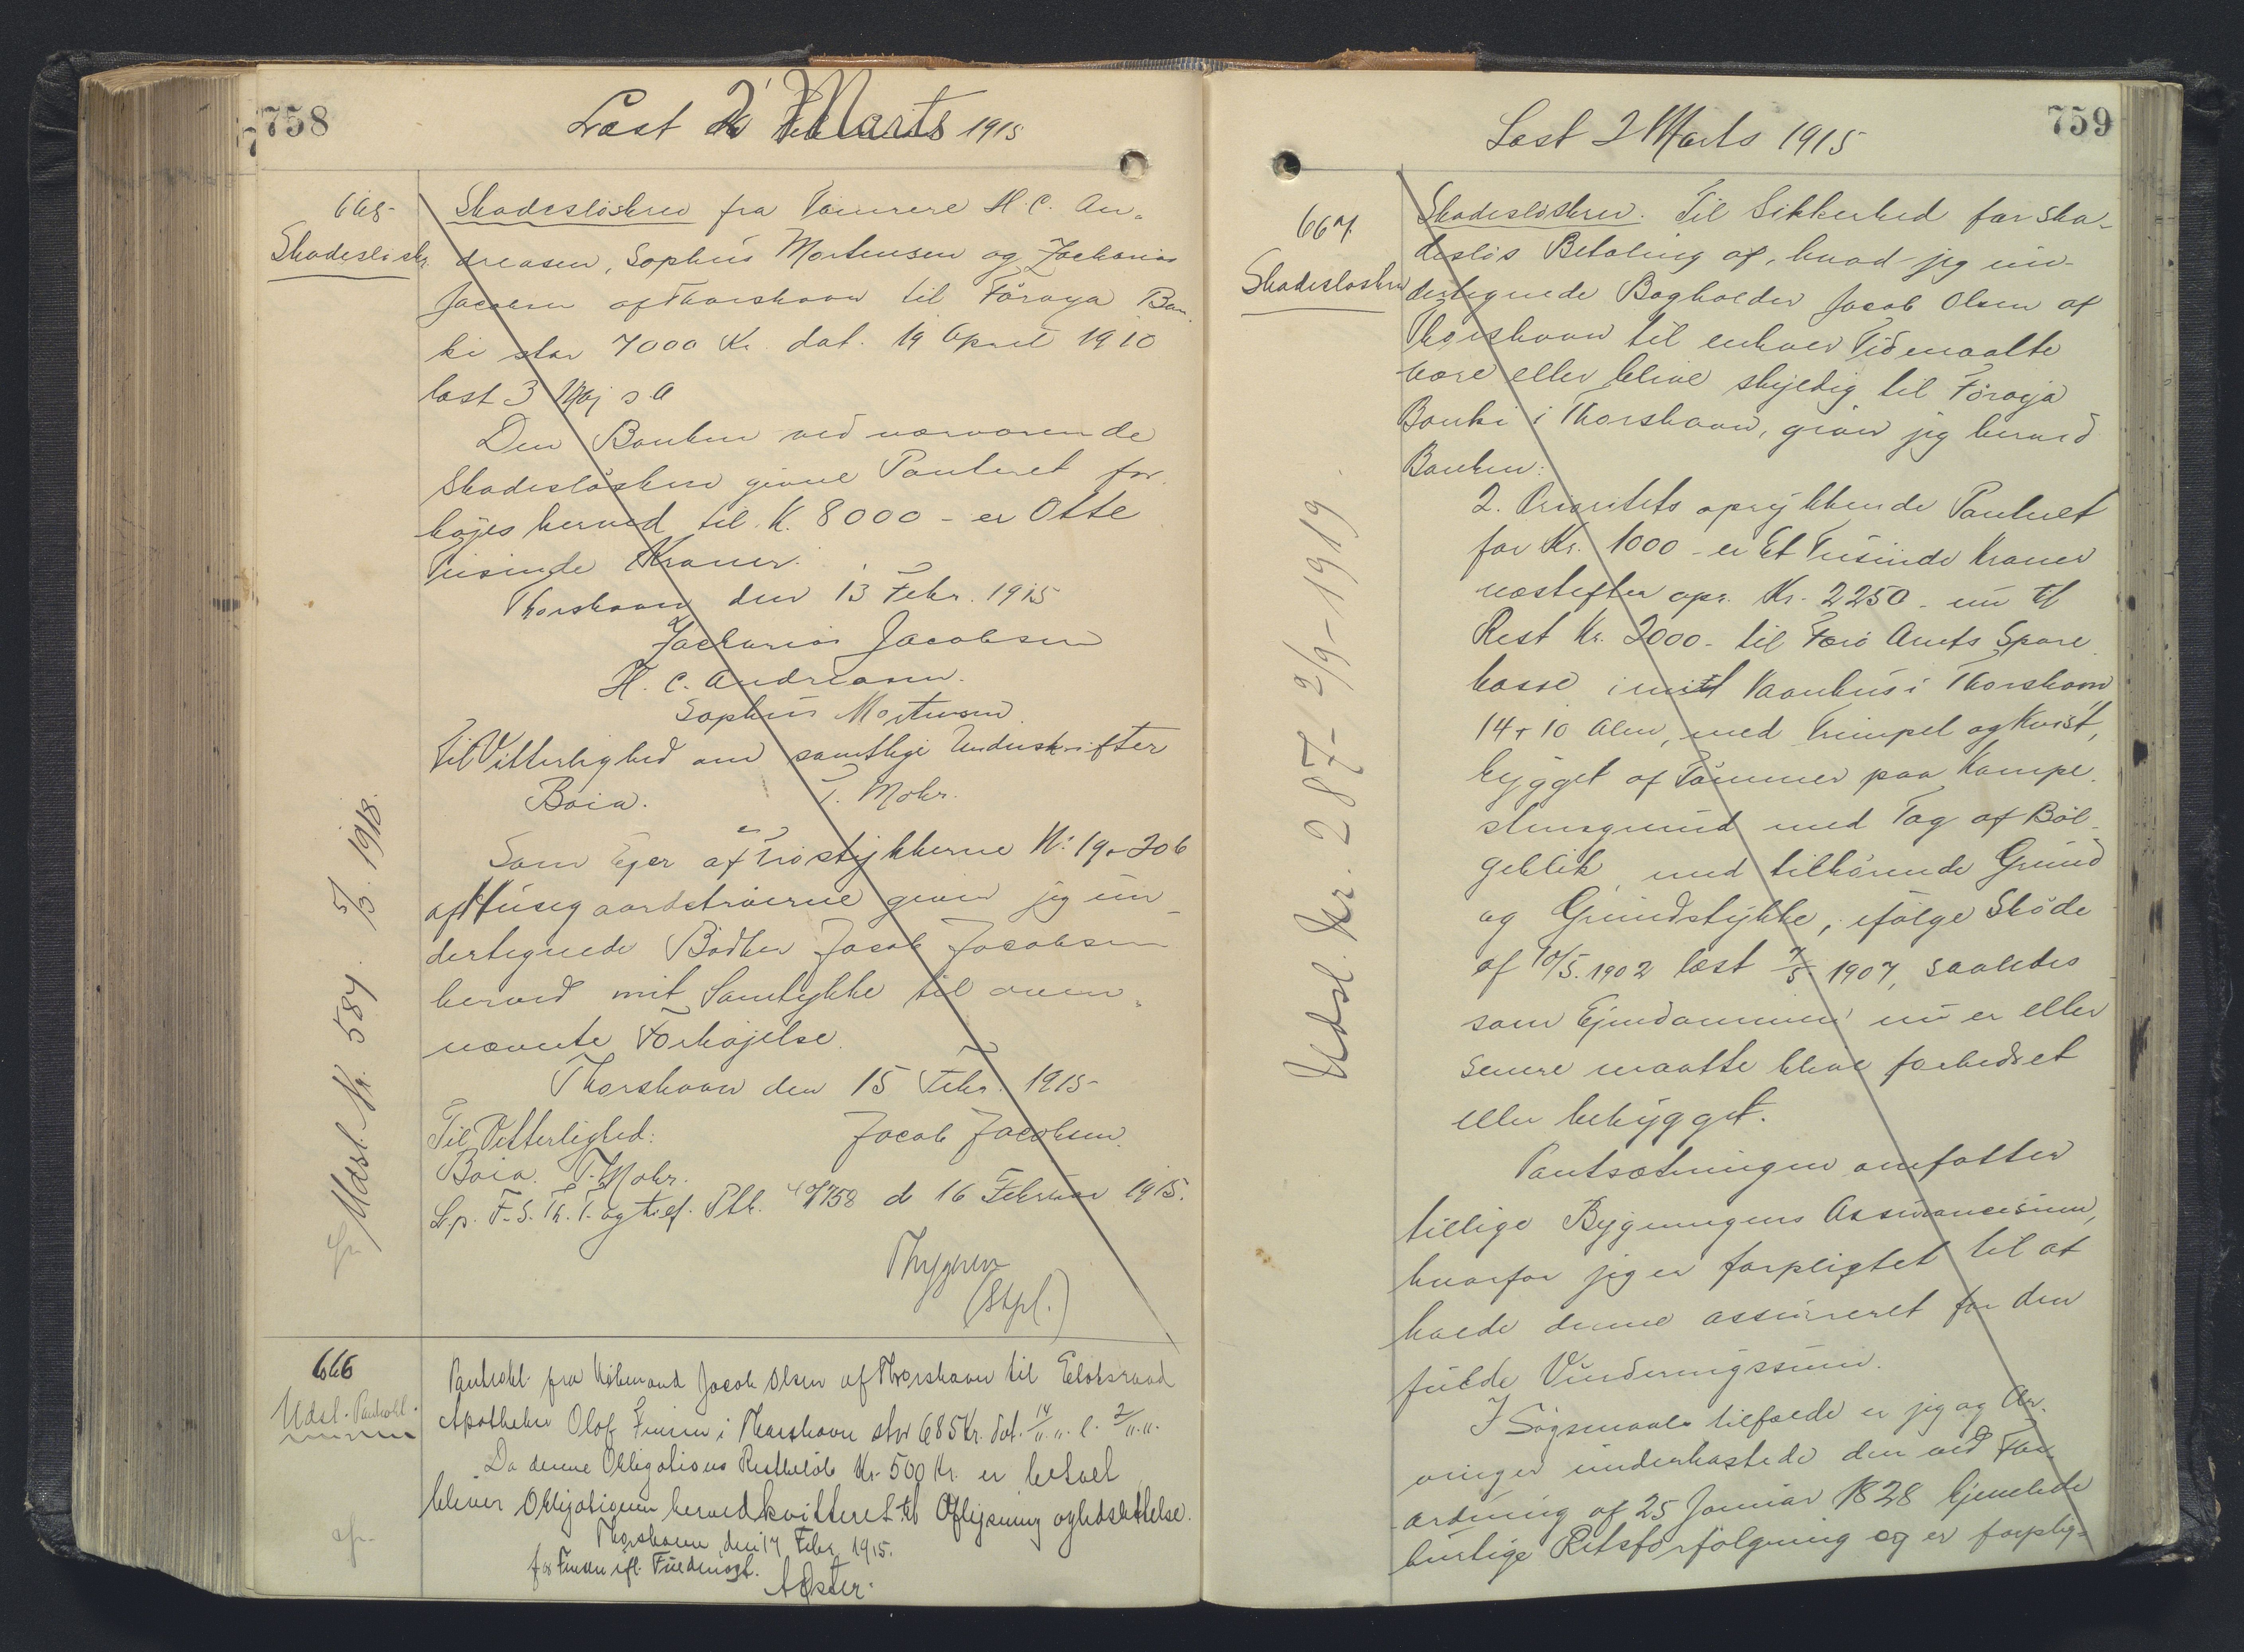 758
Læst 2' Marts 1915
665
Skadesløsbr.
Skadesløsbrev fra Tømrere H. C. An-
dreasen, Sophus Mortensen og Zacharias
Jacobsen af Thorshavn til Föroya Ban-
ki stor 7000 Kr. dat. 19 April 1910
læst 3 Maj s. A
Den Banken ved nærværende
Skadesløsbrev givne Panteret for-
højes herved til K. 8000 - er Otte
Tusinde Kroner.
Thorshavn den 13 Febr. 1915
Zacharias Jacobsen
H. C. Andreasen.
Sophus Mortensen
Til Vitterlighed om samtlige Underskrifter
Boia. T. Mohr.
Som Ejer af Trøstykkerne No 19 + 20b
af Húsegaardstrøerne giver jeg un-
dertegnede Bødker Jacob Jacobsen
herved mit Samtykke til oven-
nævnte Forhøjelse.
Thorshavn den 15 Febr. 1915
Til Vitterlighed: Jacob Jacobsen.
Boia. T. Mohr.
Lp. F. S. Th. T. og tilf. Ptb. 758 d 16 Februar 1915.
Thygesen
(Stpl.)
Udsl. Nr. 584. 5/3. 1918.
666
Udsl. Pantobl.
Pantobl. fra Købmand Jacob Olsen af Thorshavn til Etatsraad
Apotheker Olof Finsen i Thorshavn stor 685 Kr. dat. 14/11 11. l. 2/11 11.
Da denne Obligations Restbeløb Kr. 500 Kr. er betalt
bliver Obligationen herved kvitteret til Aflysning og Udslettelse.
Thorshavn, den 17 Febr. 1915.
for Finsen ifl. Fuldmagt.
A Øster.
759
Læst 2 Marts 1915
667
Skadesløsbrev
Skadesløsbrev. Til Sikkerhed for ska-
desløs Betaling af, hvad jeg un-
dertegnede Bogholder Jacob Olsen af
Thorshavn til enhver Tid maatte
være eller blive skyldig til Föroya
Banki i Thorshavn, giver jeg herved
Banken:
2. Prioritets oprykkende Panteret
for Kr. 1000 - er Et Tusinde Kroner
næstefter opr. Kr. 2250 - nu til
Rest Kr. 2000 - til Færø Amts Spare
kasse i mit Vaanhus i Thorshavn
14 + 10 Alen, med Trimpel og Kvist,
bygget af Tømmer paa Kampe-
stensgrund med Tag af Böl-
geblik, med tilhørende Grund
og Grundstykke, ifølge Skøde
af 10/5. 1902 læst 7/5 1907, saaledes
som Ejendommen nu er eller
senere maatte blive forbedret
eller bebygget.
Pantsætningen omfatter
tillige Bygningens Assurancesum,
hvorfor jeg er forpligtet til at
holde denne assureret for den
fulde Vurderingssum.
I Søgsmaals tilfælde er jeg og Ar-
vinger underkastede den ved For-
ordning af 25 Januar 1828 hjemlede
hurtige Retsforfølgning og er forplig-
Udsl. Nr. 287 - 2/9 - 1919.